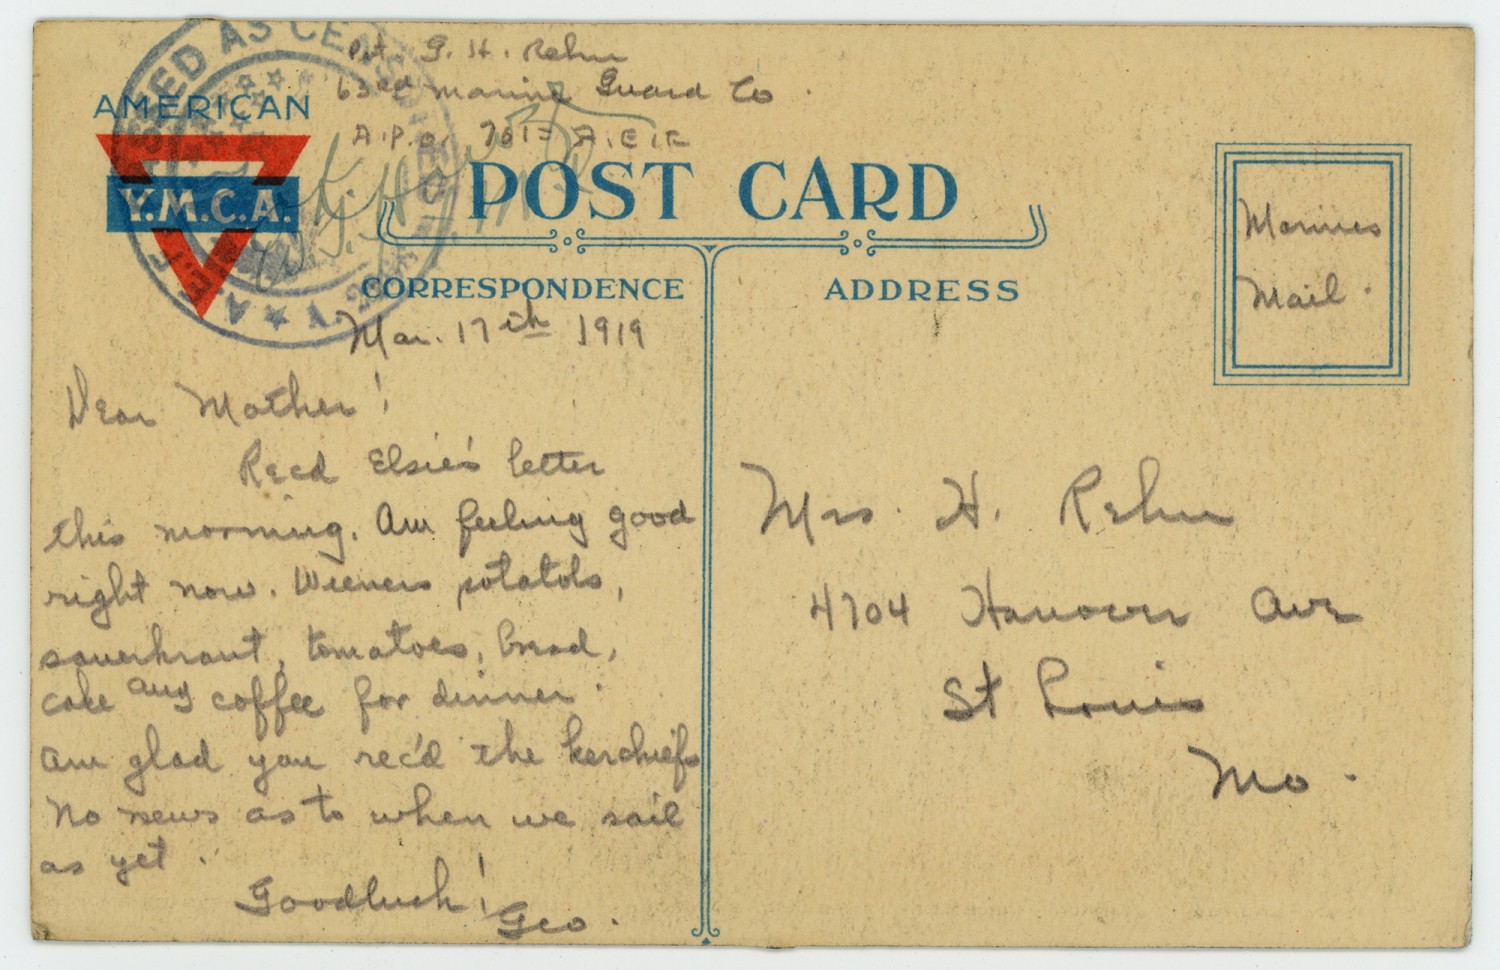 Pvt. G. H. Rehm
63rd Marine Guard Co.
A.P.O. 701 = A.E.F.
PASSED AS CENSORED
A.E.F.
AMERICAN
Y.M.C.A.
POST CARD
CORRESPONDENCE
ADDRESS
Marines
Mail.
Mar. 17th 1919
Dear Mother!
Recd Elsie's letter
this morning. Am feeling good
right now. Wieners potatoes,
sauerkraut, tomatoes, bread,
cake and coffee for dinner.
Am glad you rec'd the kerchiefs
No news as to when we sail
as yet.
Goodluck!
Geo.
Mrs. H. Rehm
4704 Hanover Ave
St Louis
Mo.